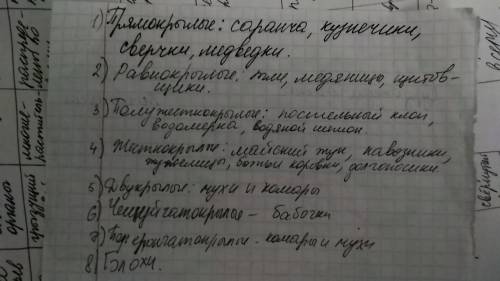 1) Прямокрылые: саранча, кузнечики,
сверчки, медведки.
2) Равнокрылые: тли, медяницы, щитов-
щики.
3) Полужесткокрылые: постельный клоп,
водомерка, водяной
4) Жесткокрылые: майский жук, навозники,
жужелицы, божьи коровки, долгоносики.
5) Двукрылые: мухи и комары
6) Чешуйчатокрылые - бабочки
7) комары и мухи
8) Блохи.
органы